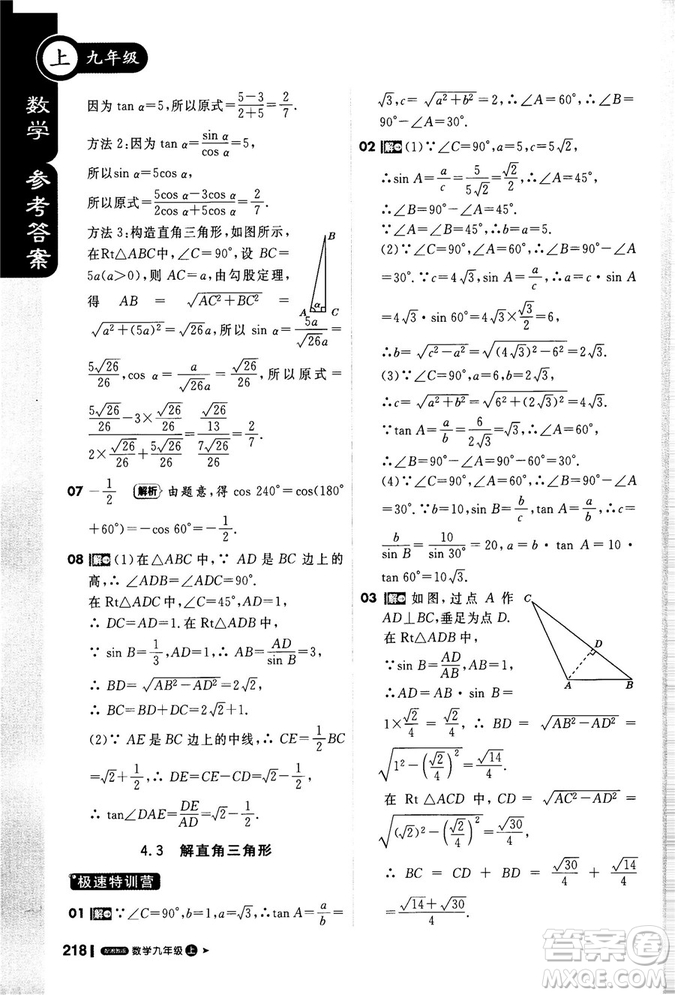 上 九年级
数学 参考答案
因为 tan α=5,所以原式=\frac{5-3}{2+5}=\frac{2}{7}.
方法2:因为 tan α=\frac{sin α}{cos α}=5,
所以sin α=5cos α,
所以原式=\frac{5cos α-3cos α}{2cos α+5cos α}=\frac{2}{7}.
方法3:构造直角三角形,如图所示,
在Rt△ABC中,∠C=90°,设 BC=
5a(a>0),则 AC=a,由勾股定理,
得 AB=\sqrt{AC²+BC²}
=\sqrt{a²+(5a)²}=\sqrt{26}a,所以 sin α=\frac{5a}{\sqrt{26}a}=
\frac{5\sqrt{26}}{26},cos α=\frac{a}{\sqrt{26}a}=\frac{\sqrt{26}}{26},所以原式=
\frac{\frac{5\sqrt{26}}{26}-3×\frac{\sqrt{26}}{26}}{2×\frac{\sqrt{26}}{26}+\frac{5\sqrt{26}}{26}}=\frac{\frac{\sqrt{26}}{13}}{\frac{7\sqrt{26}}{26}}=\frac{2}{7}.
A α C B
07 -\frac{1}{2} 解析 由题意,得 cos 240°=cos(180°
+60°)=-cos 60°=-\frac{1}{2}.
08 解 (1)在△ABC中,∵ AD 是 BC 边上的
高,∴ ∠ADB=∠ADC=90°.
在 Rt△ADC 中,∵∠C=45°,AD=1,
∴ DC=AD=1.在Rt△ADB中,
∵ sin B=\frac{1}{3},AD=1,∴ AB=\frac{AD}{sin B}=3,
∴ BD=\sqrt{AB²-AD²}=2\sqrt{2},
∴ BC=BD+DC=2\sqrt{2}+1.
(2)∵ AE是 BC 边上的中线,∴ CE=\frac{1}{2}BC
=\sqrt{2}+\frac{1}{2},∴ DE=CE-CD=\sqrt{2}-\frac{1}{2},
∴ tan∠DAE=\frac{DE}{AD}=\sqrt{2}-\frac{1}{2}.
4.3 解直角三角形
极速特训营
01 解 ∵∠C=90°,b=1,a=\sqrt{3},∴tan A=\frac{a}{b}=
218 数学九年级 上
\sqrt{3},c=\sqrt{a²+b²}=2,∴∠A=60°,∴∠B=90°-
∠A=30°.
02 解 (1)∵∠C=90°,a=5,c=5\sqrt{2},
∴sin A=\frac{a}{c}=\frac{5}{5\sqrt{2}}=\frac{\sqrt{2}}{2},∴∠A=45°,
∴∠B=90°-∠A=45°,
∴∠A=∠B,∴b=a=5.
(2)∵∠C=90°,∠A=60°,∴∠B=90°-∠A=
30°.∵c=4\sqrt{3},sin A=\frac{a}{c},∴a=c·sin A=
4\sqrt{3}·sin 60°=4\sqrt{3}×\frac{\sqrt{3}}{2}=6,
∴b=\sqrt{c²-a²}=\sqrt{(4\sqrt{3})²-6²}=2\sqrt{3}.
(3)∵∠C=90°,a=6,b=2\sqrt{3},
∴c=\sqrt{a²+b²}=\sqrt{6²+(2\sqrt{3})²}=4\sqrt{3}.
∵tan A=\frac{a}{b}=\frac{6}{2\sqrt{3}}=\sqrt{3},∴∠A=60°,
∴∠B=90°-∠A=90°-60°=30°.
(4)∵∠C=90°,∠A=60°,∴∠B=90°-∠A=
30°.∵b=10,sin B=\frac{b}{c},tan A=\frac{a}{b},∴c=
\frac{b}{sin B}=\frac{10}{sin 30°}=20,a=b·tan A=10·
tan 60°=10\sqrt{3}.
03 解 如图,过点 A 作
AD⊥BC,垂足为点 D.
在Rt△ABD中,
∵sin B=\frac{AD}{AB},
∴AD=AB·sin B=
1×\frac{\sqrt{2}}{4}=\frac{\sqrt{2}}{4}, ∴ BD=\sqrt{AB²-AD²}=
\sqrt{1²-(\frac{\sqrt{2}}{4})²}=\frac{\sqrt{14}}{4}.
C D A B
在 Rt △ACD 中, CD=\sqrt{AC²-AD²}=
\sqrt{(\sqrt{2})²-(\frac{\sqrt{2}}{4})²}=\frac{\sqrt{30}}{4},
∴ BC = CD + BD = \frac{\sqrt{30}}{4}+\frac{\sqrt{14}}{4}=
\frac{\sqrt{14}+\sqrt{30}}{4}.
答案圈
MXQE.COM